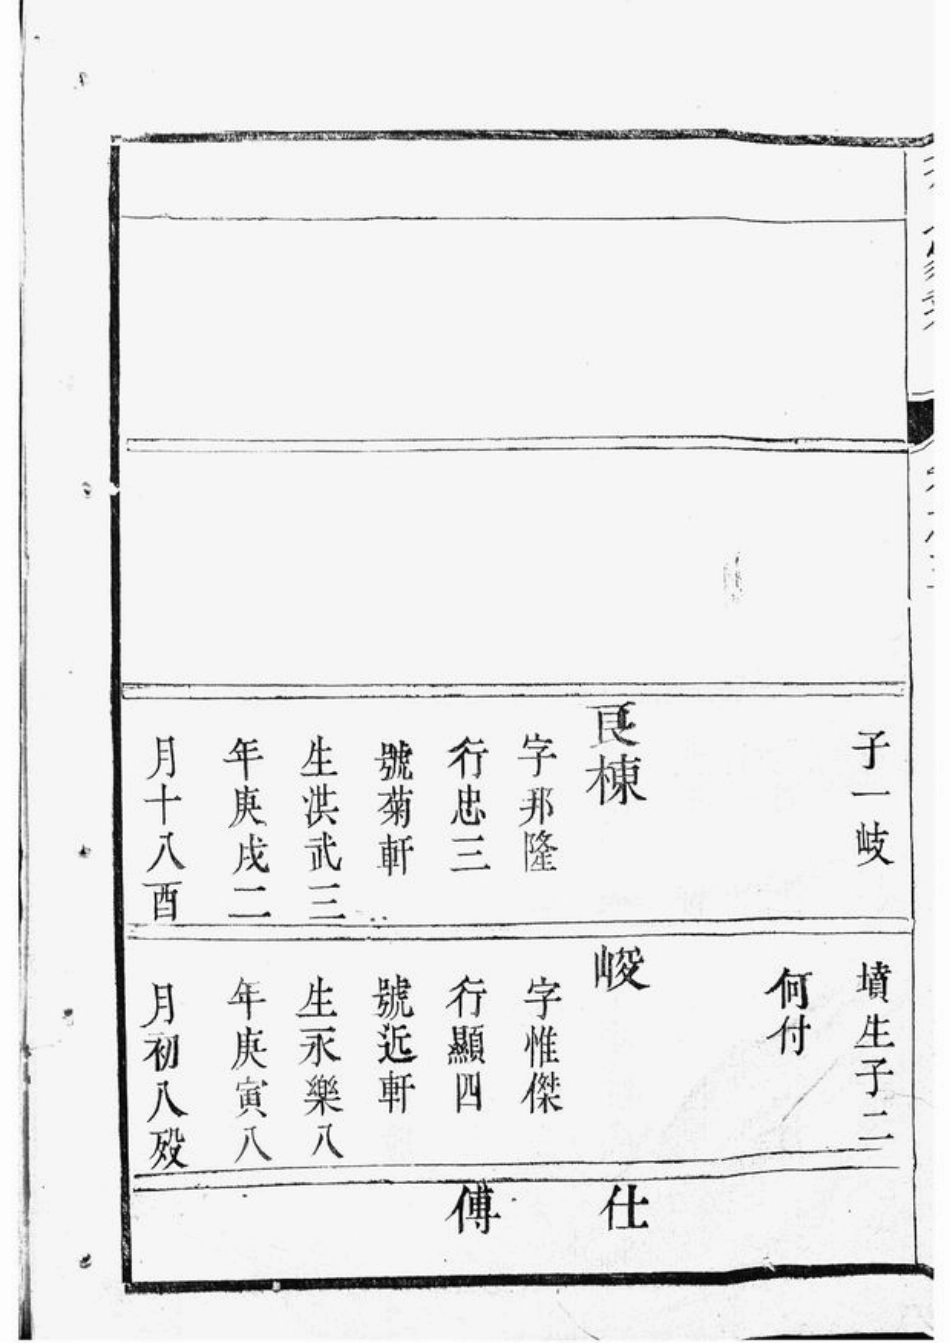 子一岐
良棟
字邦隆
行忠三
號菊軒
生洪武三
年庚戌二
月十八酉
墳生子二
何付
峻
字惟傑
行顯四
號近軒
生永樂八
年庚寅八
月初八歿
仕
傅